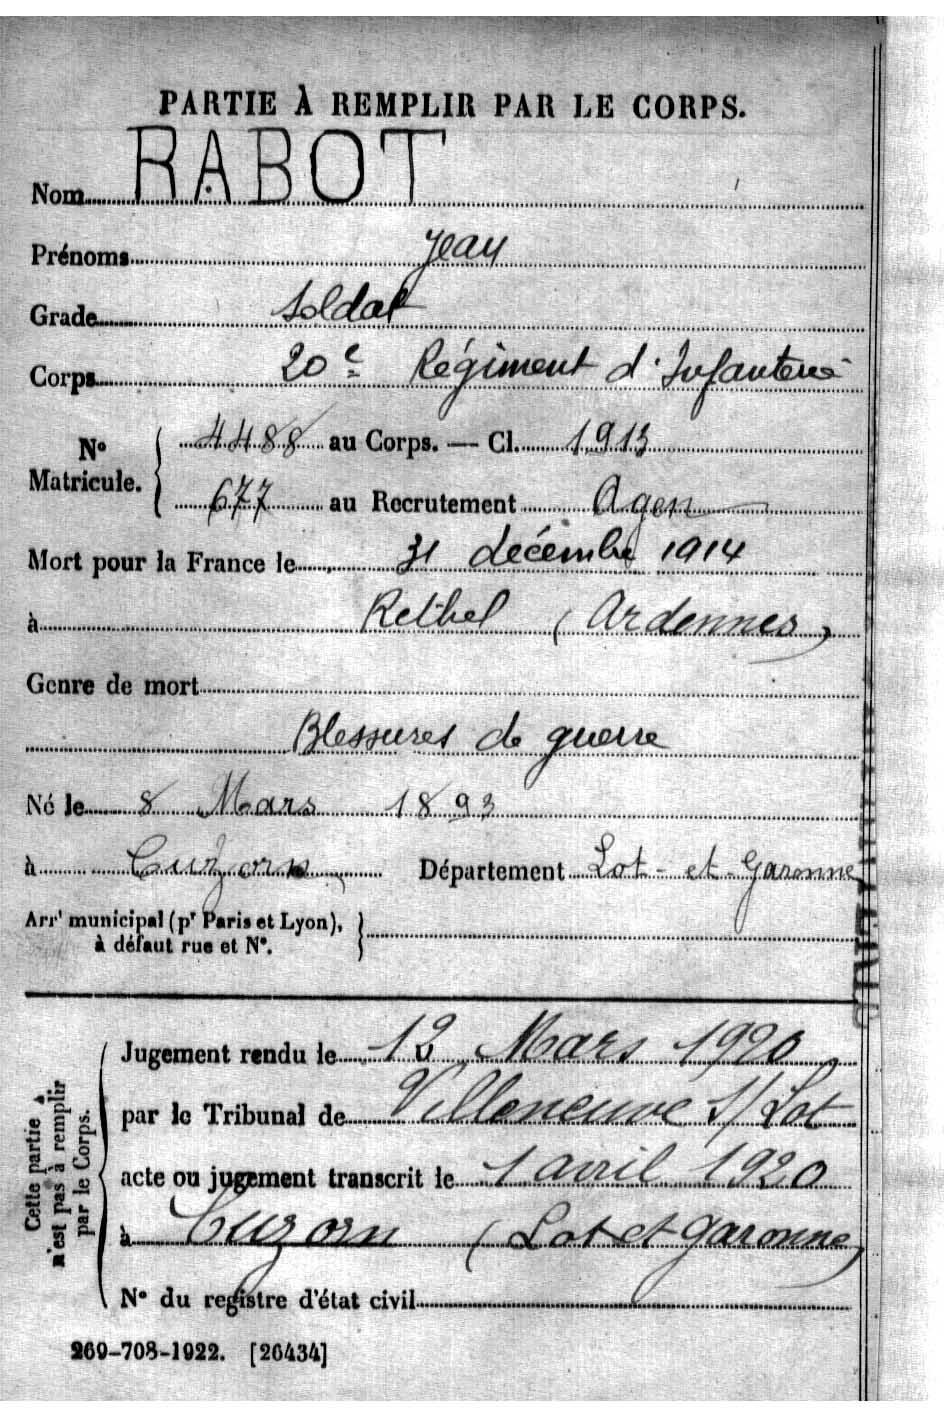 PARTIE À REMPLIR PAR LE CORPS.
Nom RABOT
Prénoms Jean
Grade Soldat
Corps 20e Régiment d'Infanterie
No Matricule. 4488 au Corps. — Cl. 1913
677 au Recrutement Agen
Mort pour la France le 31 décembre 1914
à Rethel (Ardennes)
Genre de mort
Blessures de guerre
Né le 8 Mars 1893
à Cuzorn Département Lot-et-Garonne
Arrt municipal (pr Paris et Lyon),
à défaut rue et No.
Cette partie n'est pas à remplir par le Corps.
Jugement rendu le 12 Mars 1920
par le Tribunal de Villeneuve s/Lot
acte ou jugement transcrit le 1 avril 1920
à Cuzorn (Lot et Garonne)
No du registre d'état civil
269-708-1922. [26434]